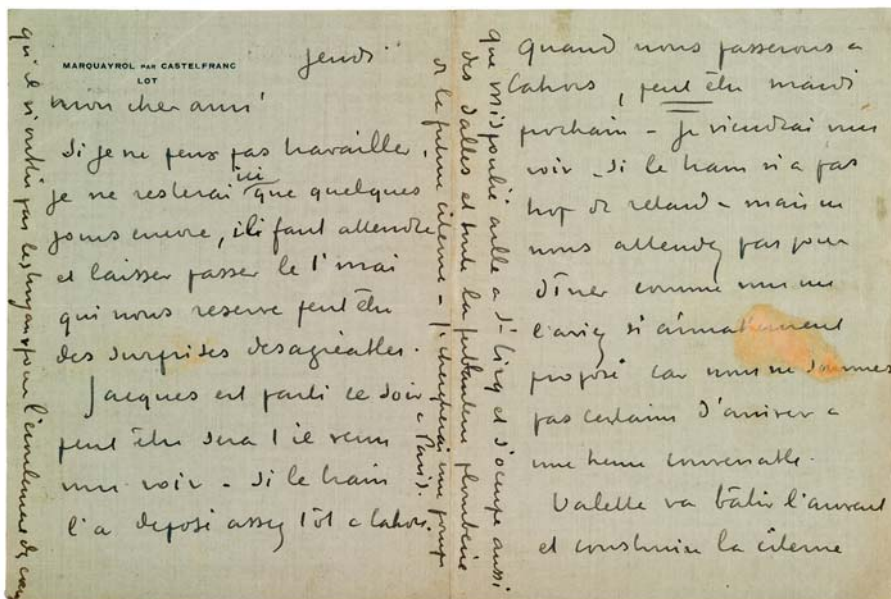 MARQUAYROL PAR CASTELFRANC
LOT
jeudi
mon cher ami
Si je ne peux pas travailler,
je ne resterai ici que quelques
jours encore, il faut attendre
et laisser passer le 1° mai
qui nous reserve peut être
des surprises desagréables.
Jacques est parti ce soir
peut être sera t il venu
vous voir - si le train
l'a deposé assez tôt a Cahors.
Quand nous passerons a
Cahors, peut être mardi
prochain - je viendrai vous
voir - si le train n'a pas
trop de retard - mais ne
nous attendez pas pour
dîner comme vous nous
l'aviez si aimablement
proposé car nous ne sommes
pas certains d'arriver a
une heure convenable.
Valette va bâtir l'auvent
et construire la citerne
que aille a St-Cirq et s'occupe aussi
des dalles et toute la plomberie
de la future citerne - je chercherai une pompe
a Paris.
qu'il n'oublie pas les tuyaux pour l'écoulement des eaux